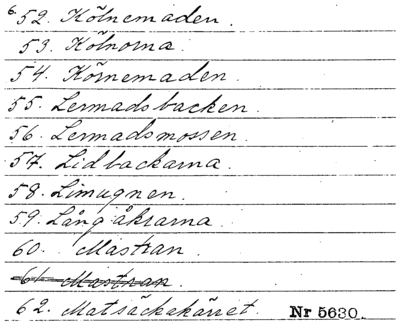 6.52. Kölnemaden.
53. Kölnorna.
54. Körnemaden.
55. Lermadsbacken.
56. Lermadsmossen.
57. Lidbackarna.
58. Limugnen.
59. Långåkrarna.
60. Mastran
61. Mastran.
62. Matsäckskärret. Nr 5630.